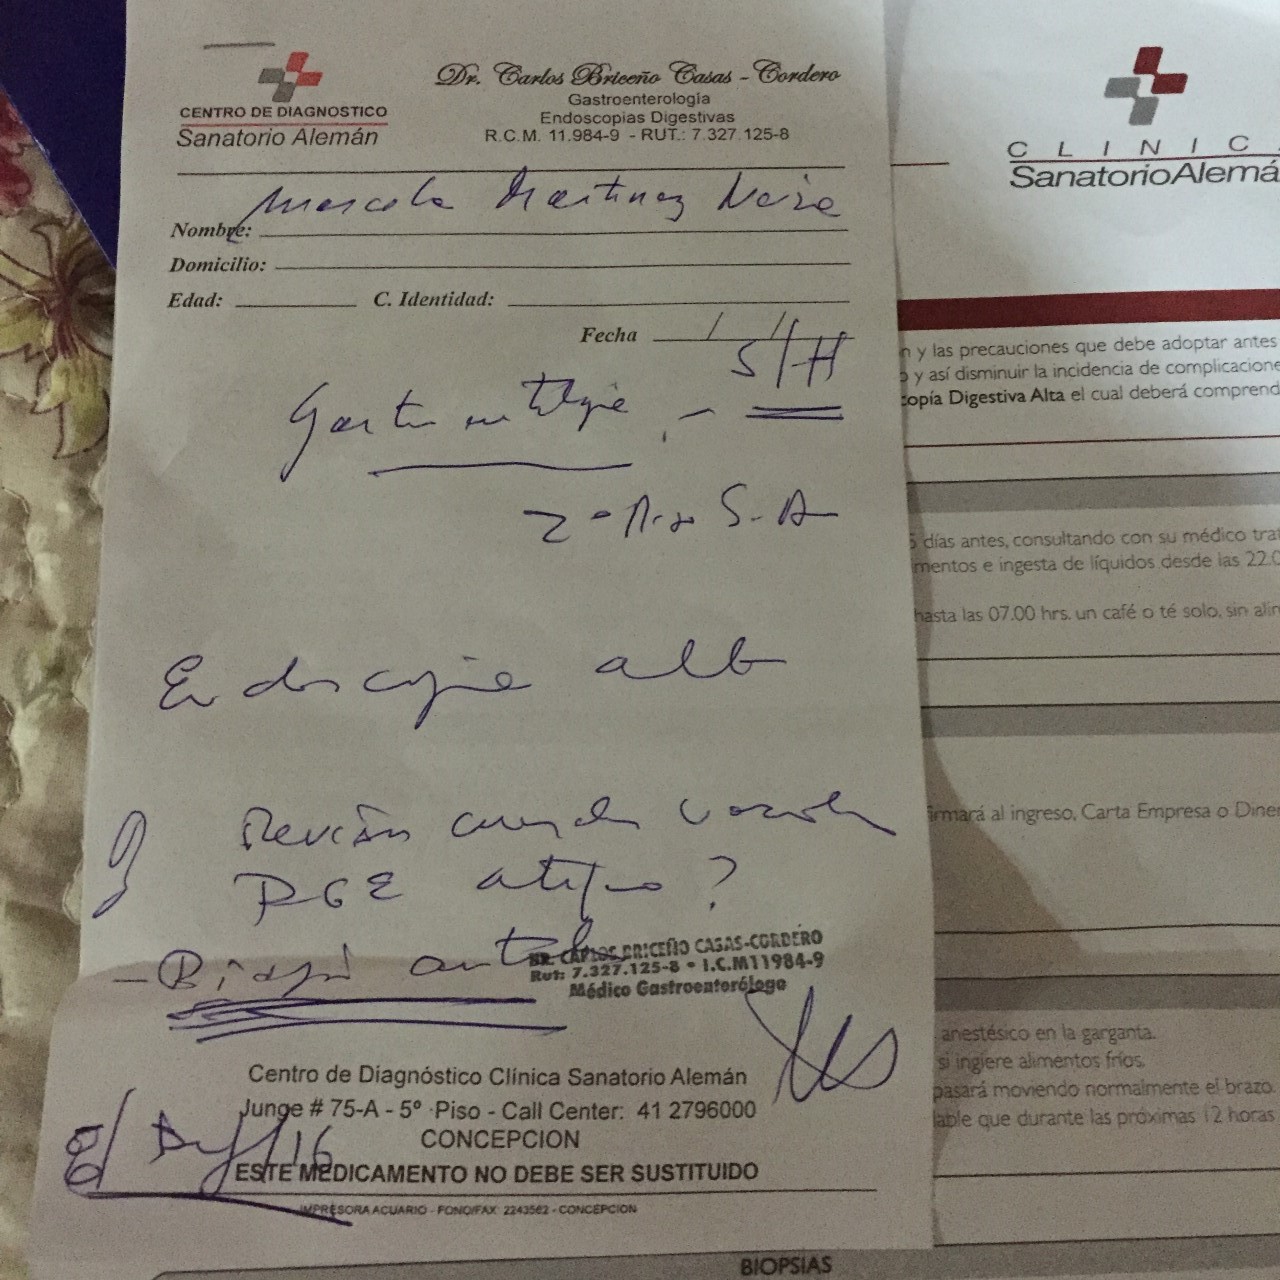 CENTRO DE DIAGNOSTICO
Sanatorio Alemán
Dr. Carlos Briceño Casas - Cordero
Gastroenterología
Endoscopias Digestivas
R.C.M. 11.984-9 - RUT.: 7.327.125-8
Nombre: Marcela Martinez Neira
Domicilio:
Edad: C. Identidad:
Fecha / /
S/H
2º Piso S.A
Endoscopia alta
RGE atipico ?
- Biopsia antral
DR. CARLOS BRICEÑO CASAS-CORDERO
Rut: 7.327.125-8 • I.C.M11984-9
Médico Gastroenterólogo
Centro de Diagnóstico Clínica Sanatorio Alemán
Junge # 75-A - 5º Piso - Call Center: 41 2796000
CONCEPCION
ESTE MEDICAMENTO NO DEBE SER SUSTITUIDO
IMPRESORA ACUARIO - FONO/FAX: 2243562 - CONCEPCION
CLINIC
SanatorioAlemá
n y las precauciones que debe adoptar antes
o y así disminuir la incidencia de complicacione
copía Digestiva Alta el cual deberá comprend
5 días antes, consultando con su médico trat
mentos e ingesta de líquidos desde las 22.0
hasta las 07.00 hrs. un café o té solo, sin alim
irmará al ingreso, Carta Empresa o Diner
anestésico en la garganta.
si ingiere alimentos fríos.
pasará moviendo normalmente el brazo.
able que durante las próximas 12 horas
BIOPSIAS